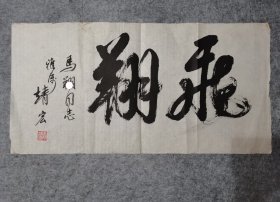 飛翔
馬翔同志
雅属
靖宏